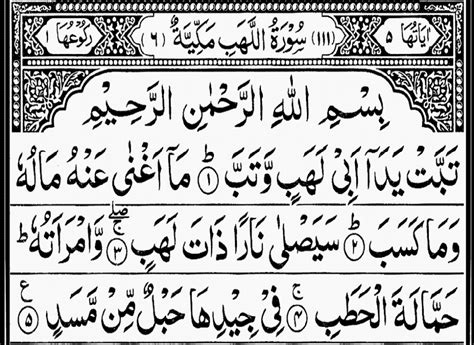 اٰيَاتُهَا ٥ (١١١) سُوْرَةُ اللَّهَبِ مَكِّيَّةٌ (٦) رُكُوْعُهَا ١
بِسْمِ اللّٰهِ الرَّحْمٰنِ الرَّحِيْمِ
تَبَّتْ يَدَاۤ اَبِيْ لَهَبٍ وَّتَبَّ ؕ ١ مَاۤ اَغْنٰى عَنْهُ مَالُهٗ
وَمَا كَسَبَ ؕ ٢ سَيَصْلٰى نَارًا ذَاتَ لَهَبٍ ۖۚ ٣ وَّامْرَاَتُهٗ ؕ
حَمَّالَةَ الْحَطَبِ ۚ ٤ فِيْ جِيْدِهَا حَبْلٌ مِّنْ مَّسَدٍ ٥ ع